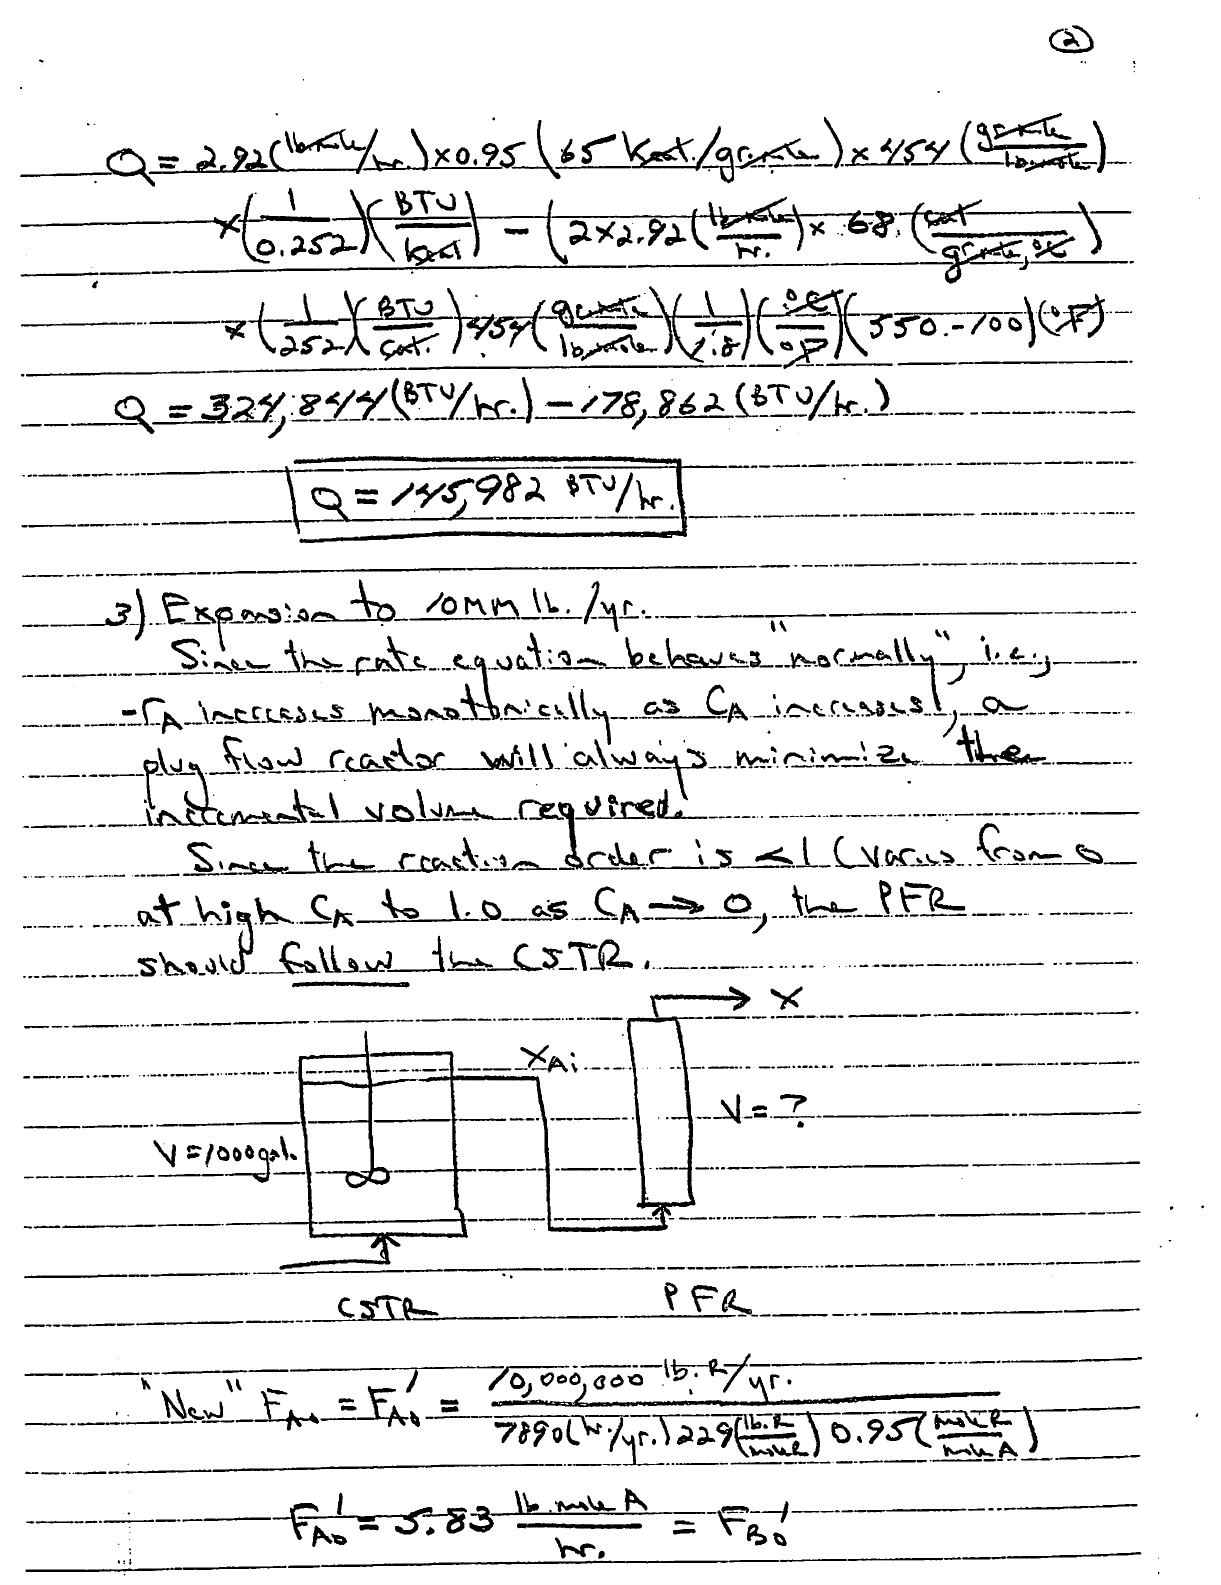 2
Q = 2.92 (lb mole/hr.) × 0.95 (65 Kcal./gr.mole) × 454 (gr mole/lb.mole)
× (1/0.252) (BTU/kcal) − (2×2.92 (lb mole/hr.) × 68. (cal/gr mole, °C)
× (1/252) (BTU/cal.) 454 (gr mole/lb.mole) (1/1.8) (°C/°F) (550.-100) (°F)
Q = 324,844 (BTU/hr.) − 178,862 (BTU/hr.)
Q = 145,982 BTU/hr.
3) Expansion to 10MM lb./yr.
Since the rate equation behaves "normally", i.e.,
-rA increases monotonically as CA increases, a
plug flow reactor will always minimize the
incremental volume required.
Since the reaction order is <1 (varies from 0
at high CA to 1.0 as CA → 0, the PFR
should follow the CSTR.
X
XAi
V = ?
V = 1000 gal.
CSTR
PFR
"New" FAo = FAo' = 10,000,000 lb. R/yr. / 7890 (hr./yr.) 229 (lb.R/mole R) 0.95 (mole R/mole A)
FAo' = 5.83 lb. mole A/hr. = FBo'